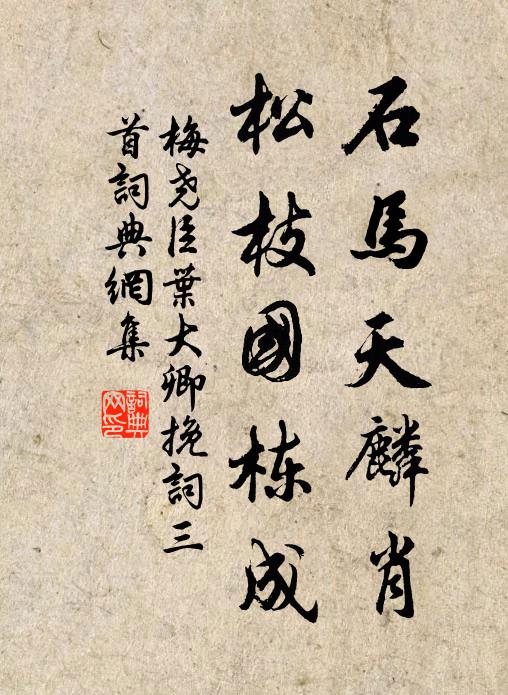 石馬天麟肖
松枝國棟成
梅堯臣葉大卿挽詞三
首詞典網集
詞典
网印